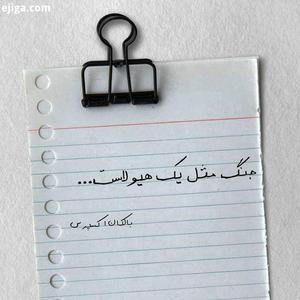 ejiga.com
جنگ مثل یک هیولاست...
بالکان اکسپرس